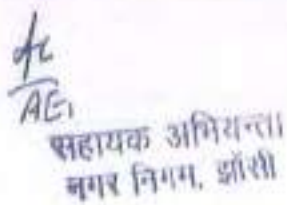 AE,
सहायक अभियन्ता
नगर निगम, झाँसी